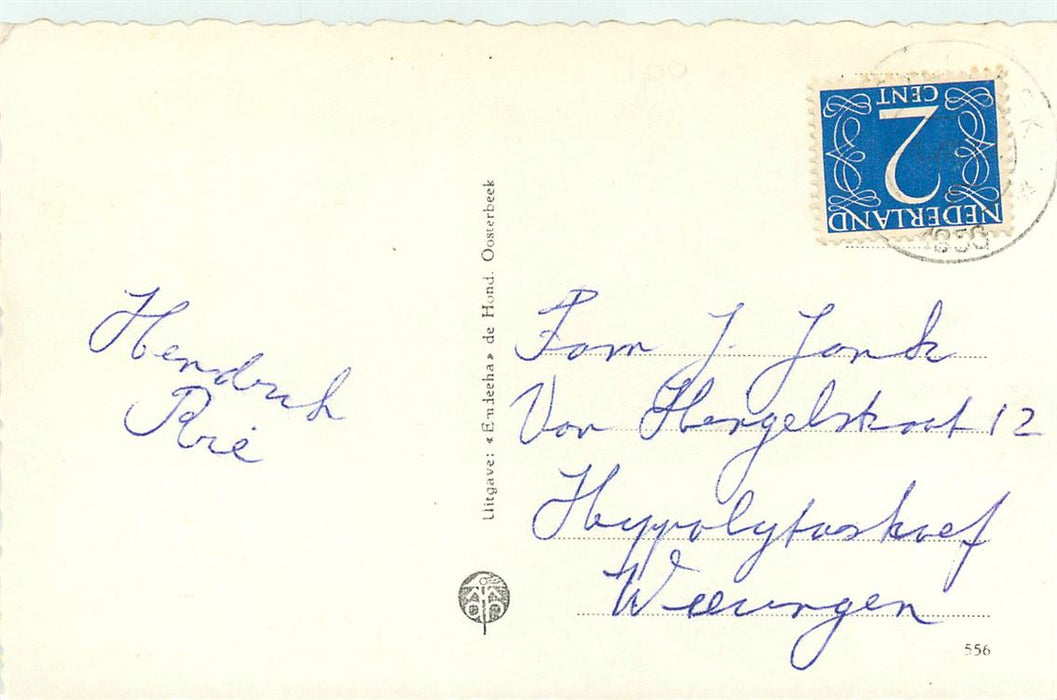 Hendrik
Rie
Uitgave: «Emdeeha» de Hond. Oosterbeek
2
CENT
NEDERLAND
Fam J. Jonk
Van Hengelstraat 12
Hyppolytoshoef
Wieringen
556